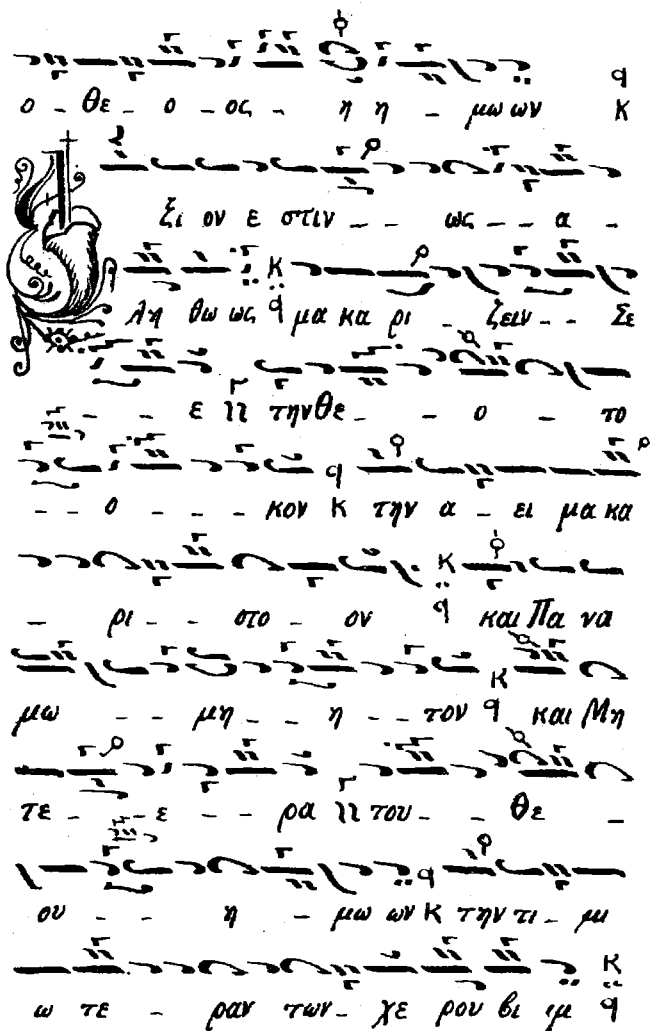 ο - θε - ο - ος - η η - μω ων Κ
Ἄ ξι ον ε στιν - - ως - - α -
λη θω ως μα κα ρι - ζειν - - Σε
- - - ε την θε - - ο - το
- - ο - - - κον Κ την α - ει μα κα
- ρι - - στο - ον και Πα να
μω - - μη - - η - - τον και Μη
τε - - ε - - ρα του - - θε -
ου - - - η - μω ων Κ την τι - μι
ω τε - ραν των - χε ρου βι ιμ